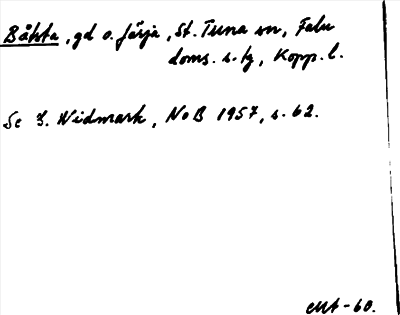 Båhta, gd o. färja, St. Tuna sn, Falu
doms. s. tg, Kopp. l.
Se G. Widmark, NoB 1957, s. 62.
-60.